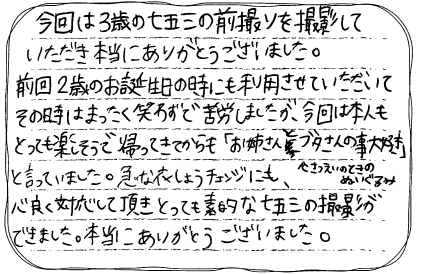 今回は3歳の七五三の前撮りを撮影して
いただき本当にありがとうございました。
前回2歳のお誕生日の時にも利用させていただいて
その時はまったく笑わずで苦労しましたが、今回は本人も
とっても楽しそうで帰ってきてからも「お姉さんとブタさんの事大好き」
と言っていました。急な衣しょうチェンジにも、
さつえいのときのぬいぐるみ
心良く対応して頂きとっても素的な七五三の撮影が
できました。本当にありがとうございました。